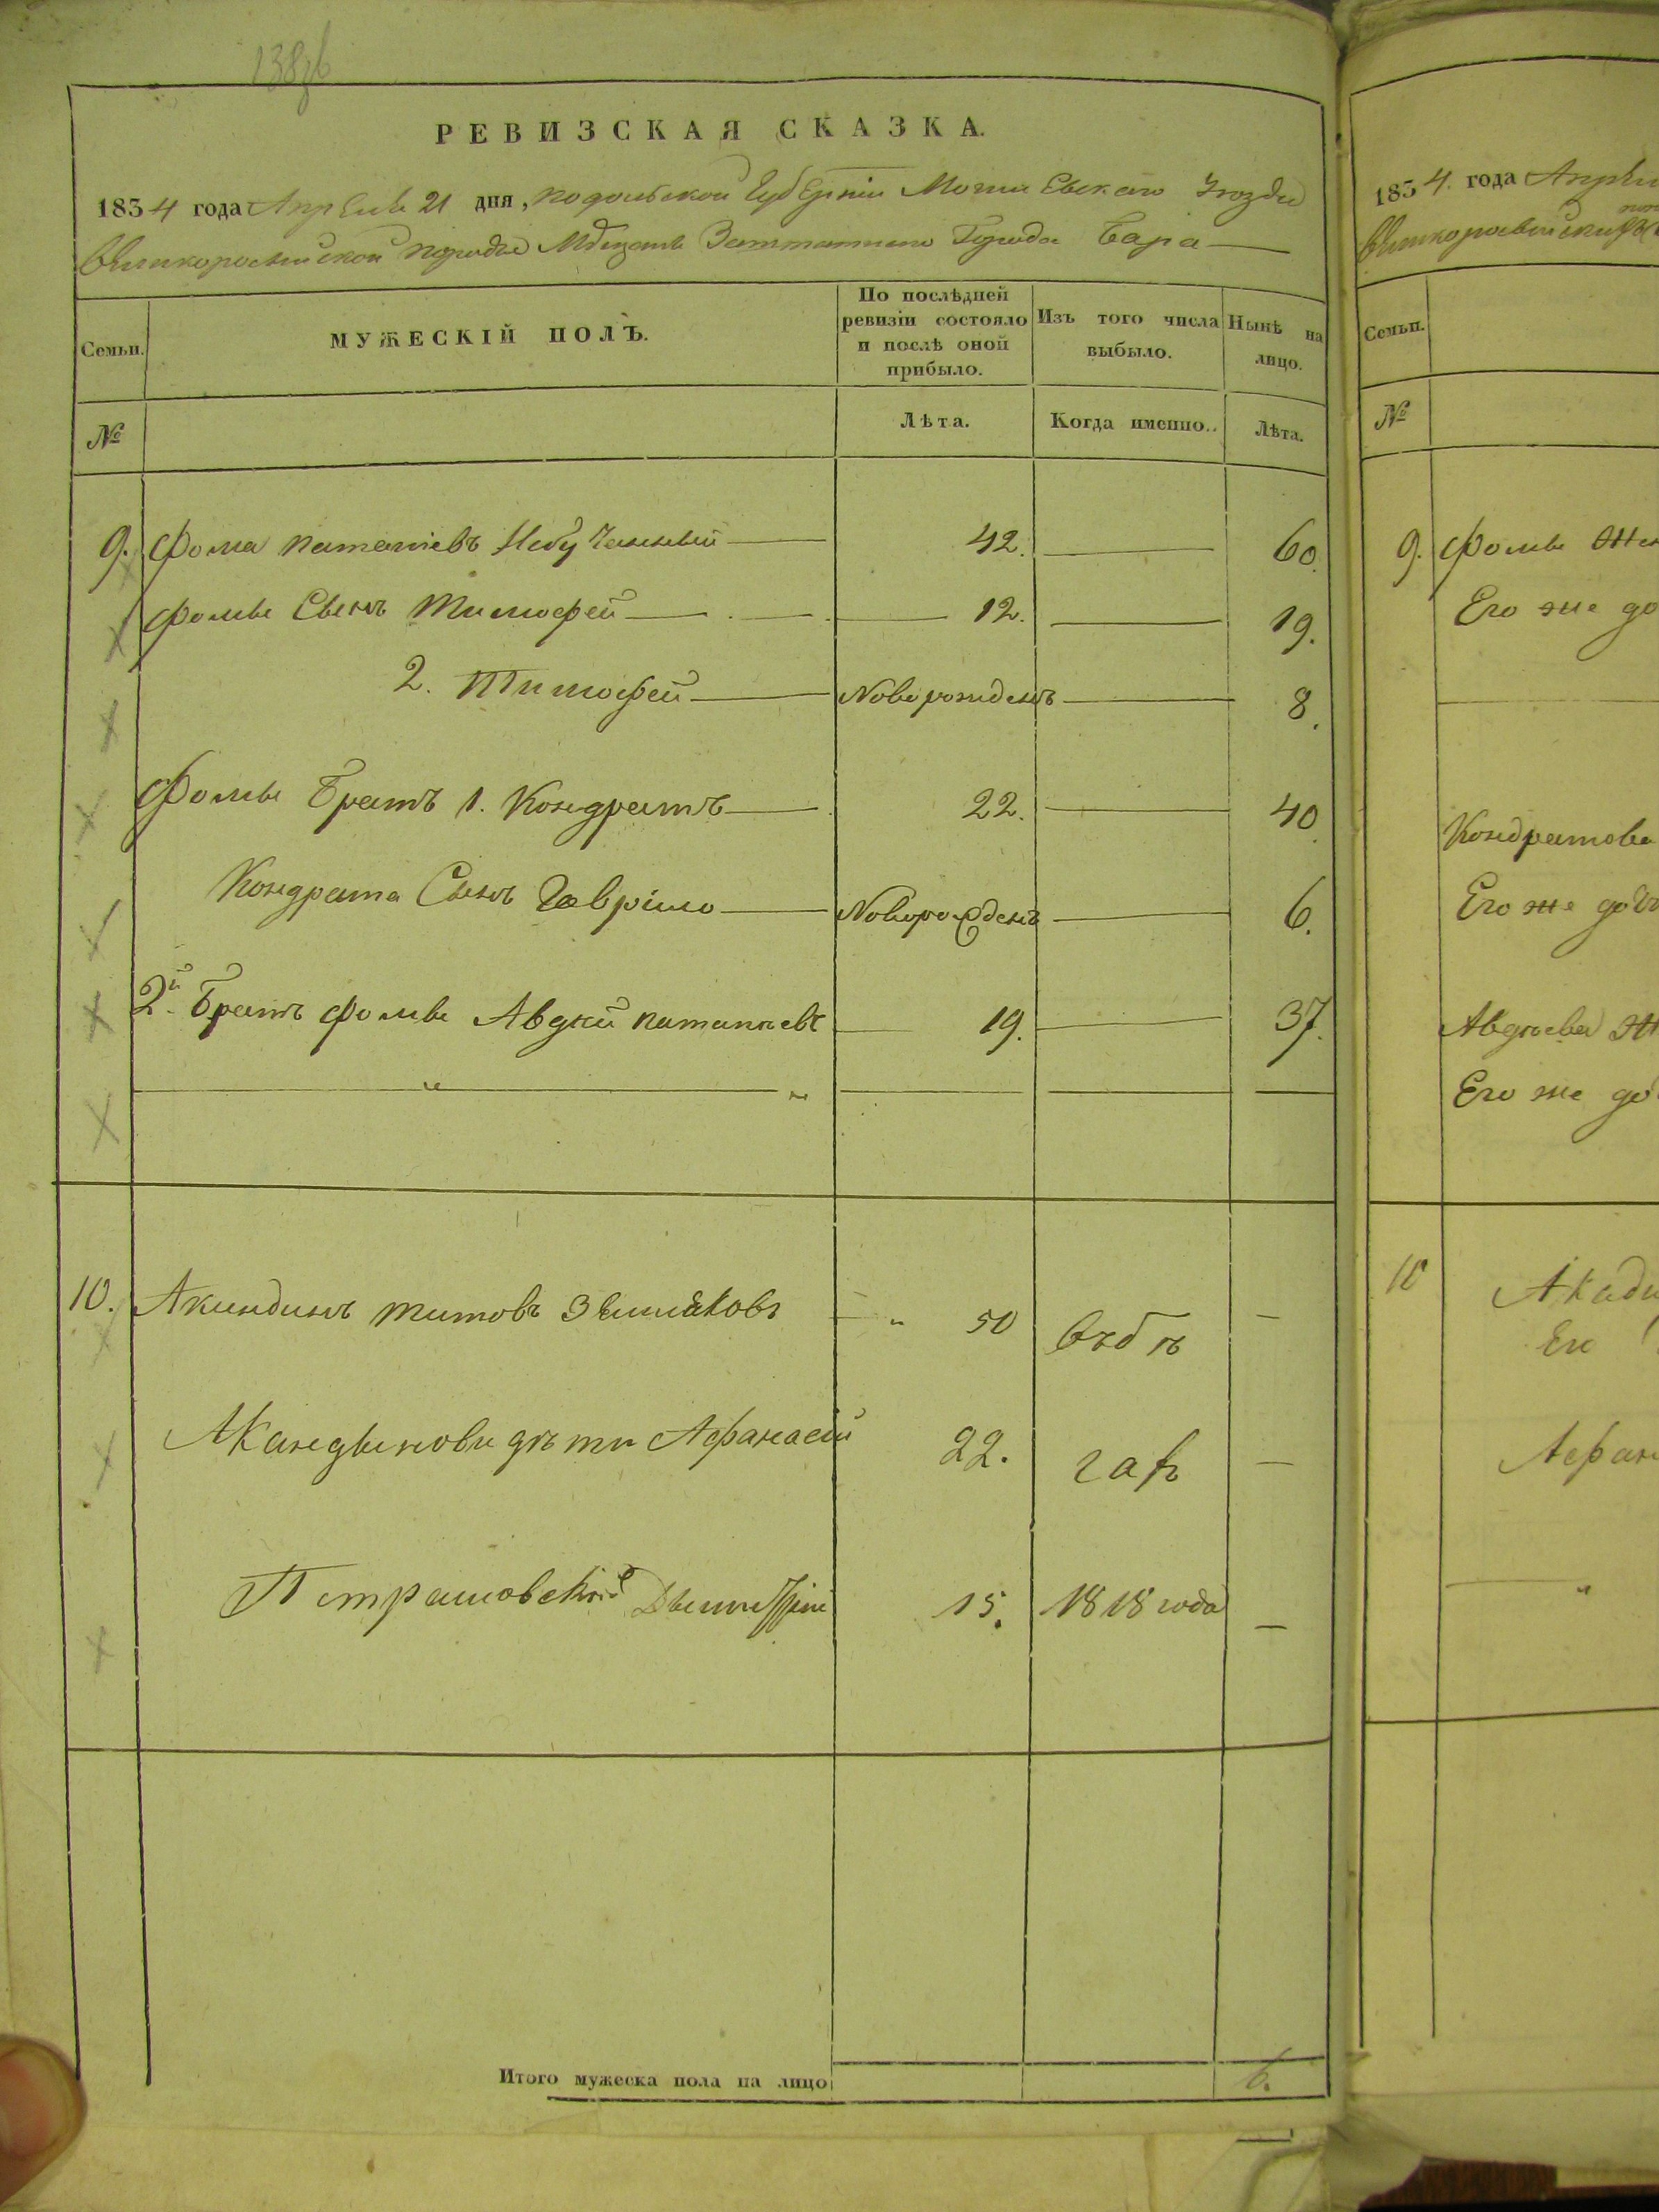 138 зв
РЕВИЗСКАЯ СКАЗКА.
1834 года Апреля 21 дня, подольской Губернии Могилевского Уезда
Великоросийской породы Мещанъ Заштатного Города Бара
Семьи.
МУЖЕСКІЙ ПОЛЪ.
По послѣдней ревизіи состояло и послѣ оной прибыло.
Изъ того числа выбыло.
Нынѣ на лицо.
№
Лѣта.
Когда именно.
Лѣта.
9. Фома патапіевъ 42. 60.
Фомы Сынъ Тимофей 12. 19.
2. Тимофей Новорожденъ 8.
Фомы Братъ 1. Кондратъ 22. 40
Кондрата Сынъ Гаврило Новорожденъ 6.
2й Братъ Фомы Авдей патапьевъ 19. 37.
10. Акиндинъ титовъ 50 въ б
Акандинови дѣти Афанасій 22.
15. 1818 года
Итого мужеска пола на лицо 6.
1834 года
Великоросийской
Семьи.
№
9. Фомы Жен
Его же до
Кондратова
Его же дочь
Авдѣева Ж
Его же до
10
Его
Афан